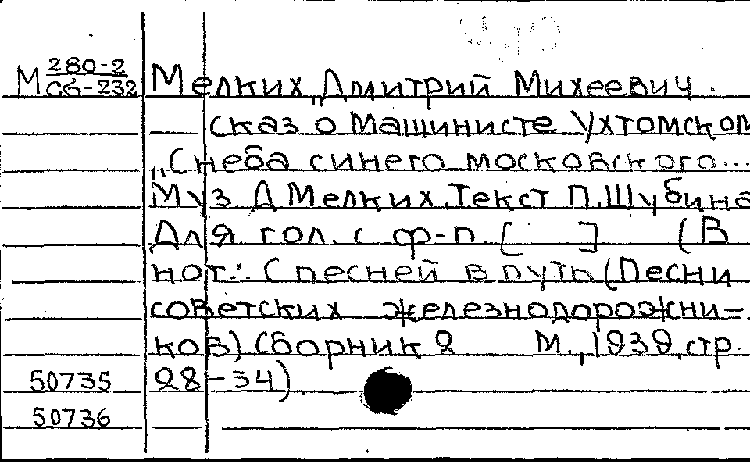 М 280-2 Мелких, Дмитрий Михеевич.
Сб-232
— Сказ о машинисте Ухтомском
„С неба синего московского...
Муз Д Мелких. Текст П. Шубина
Для гол. с ф-п. [ ] (В
нот.: С песней в путь (Песни
советских железнодорожни-
ков) Сборник 2 М., 1939, стр.
50735 28-34)
50736